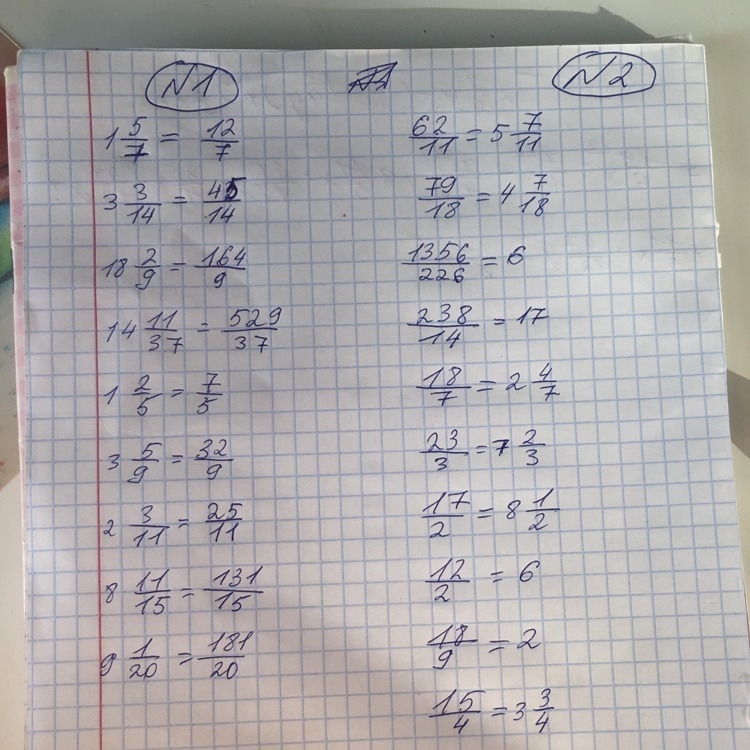 N1
1 5/7 = 12/7
3 3/14 = 45/14
18 2/9 = 164/9
14 11/37 = 529/37
1 2/5 = 7/5
3 5/9 = 32/9
2 3/11 = 25/11
8 11/15 = 131/15
9 1/20 = 181/20
N2
62/11 = 5 7/11
79/18 = 4 7/18
1356/226 = 6
238/14 = 17
18/7 = 2 4/7
23/3 = 7 2/3
17/2 = 8 1/2
12/2 = 6
18/9 = 2
15/4 = 3 3/4